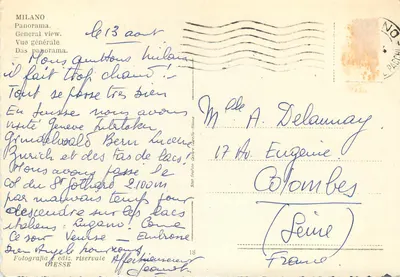 MILANO
Panorama.
General view.
Vue générale
Das panorama.
le 13 août
Nous quittons Milan
il fait trop chaud !
Tout se passe très bien
En Suisse nous avons
visité Genève Interlaken
Grindelwald Bern Lucern
Zurich et des tas de lacs !
Nous avons passé le
Col du St Gothard 2100m
par mauvais temps pour
descendre sur les lacs
italiens : Lugano. Come
Ce soir Venise
Affectueusement
Fotografia e ediz. riservate
GIESSE
Mlle A. Delaunay
17 Av. Eugénie
Colombes
(Seine)
France